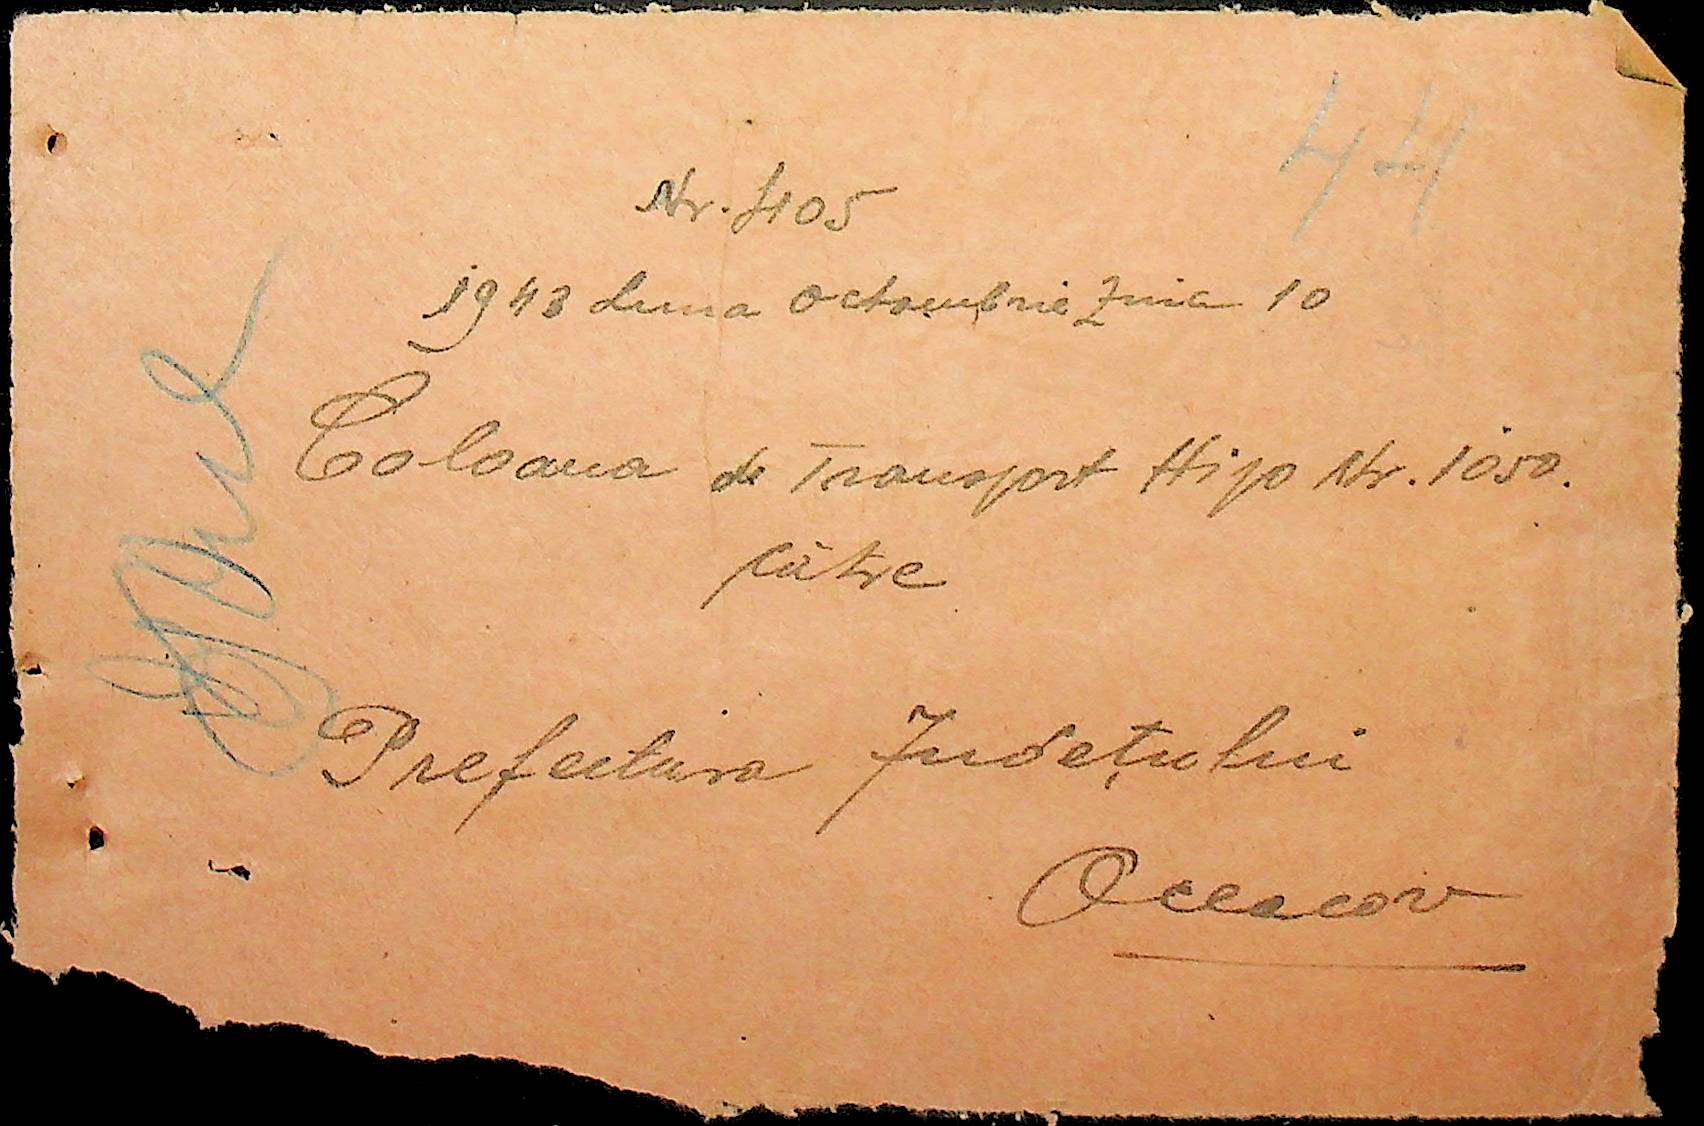 44
Nr. 405
1943 Luna Octombrie Ziua 10
Coloana de Transport Hipo Nr. 1050.
către
Prefectura Județului
Oceacov